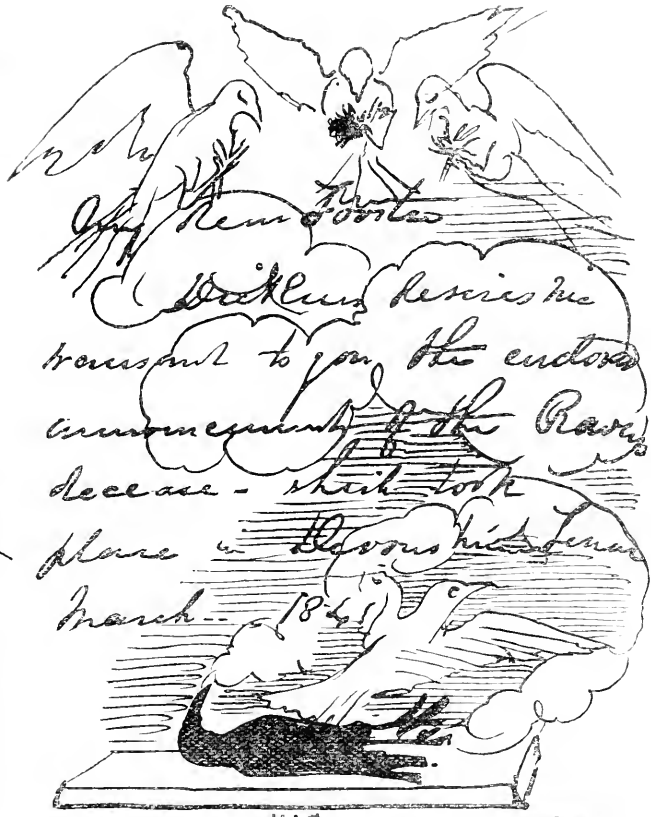 My dear Forster
Dickens desires me
transmit to you the enclosed
announcement of the Raven's
decease - which took
place in Devonshire Terrace
March -- 184